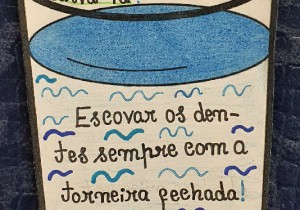 Escovar os den-
tes sempre com a
torneira fechada!